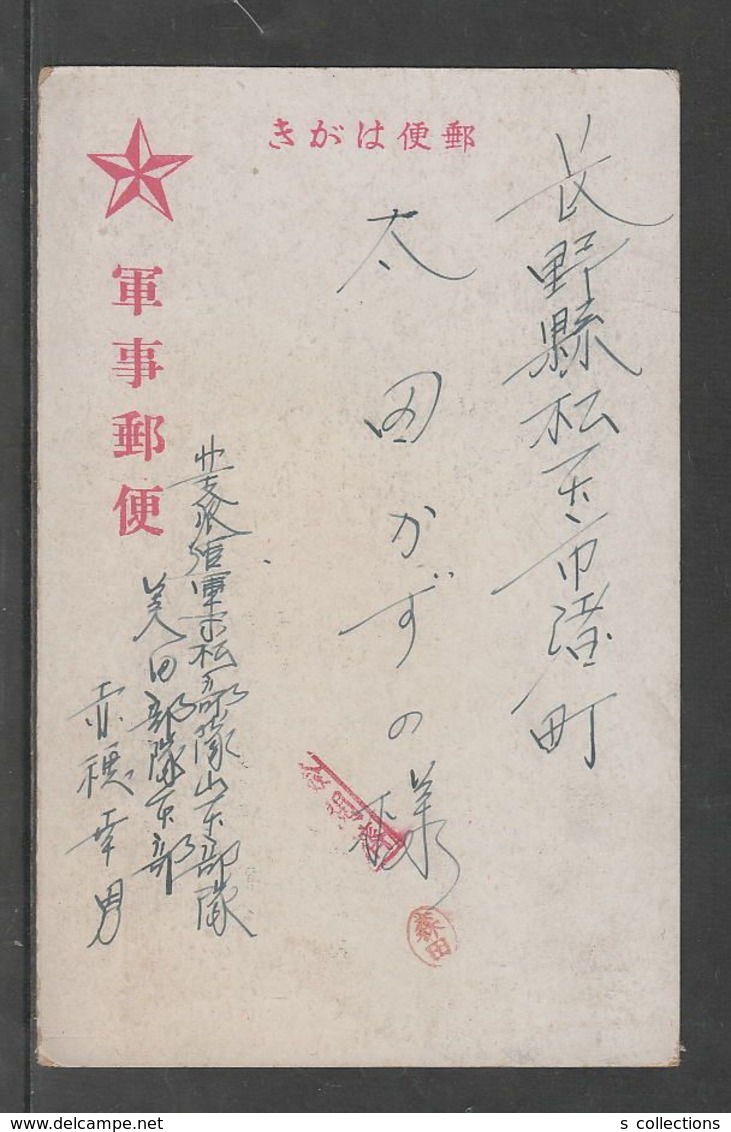 郵便はがき
軍事郵便
長野縣松本市澄町
太田かずの様
北支派遣軍末松部隊山本部隊
美田部隊本部
赤穂幸男
検閲済
森田
s collections